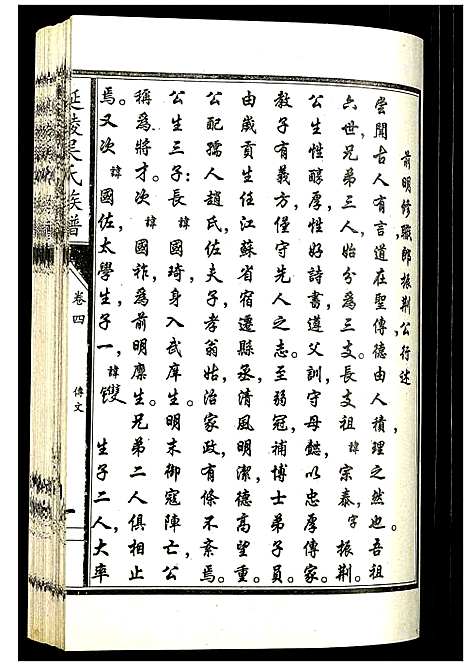 前明修職郎振荆公行述
嘗聞古人有言道在聖傳德由人積理之然也。吾祖
六世兄弟三人，始分為三支。長支祖諱宗泰，字振荆。
公生性醇厚，性好詩書，遵父訓，守母懿，以忠厚傳家。
教子有義方，僅守先人之志。至弱冠，補博士弟子員，
由歲貢生任江蘇省宿遷縣丞，清風明潔，德高望重。
公配孺人趙氏，佐夫子，孝翁姑，治家政有條不紊焉。
公生三子：長諱國琦，身入武庠生，明末御寇陣亡，公
稱為將才。次諱國祚，為前明廩生。兄弟二人俱相止
焉。又次諱國佐，太學生，子一，諱 生子二人，大率
延陵吴氏族譜
卷四
傳文
一